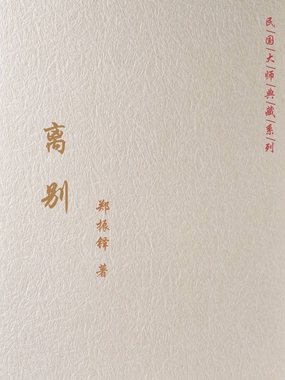 民国大师典藏系列
离别
郑振铎 著